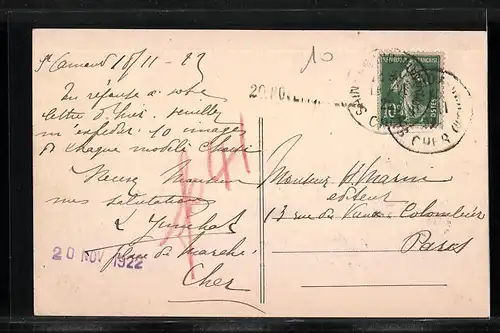 St Amand 18/11 - 22
En réponse a votre
lettre d'hier, veuillez
m'expédier 10 images
de chaque modèle
Recevez Monsieur
mes salutations
place du Marché
Cher
20 NOV 1922
10
20 NOV
REPUBLIQUE FRANÇAISE
10
POSTES
CHER
Monsieur H.
editeur
13 rue du Vieux Colombier
Paris